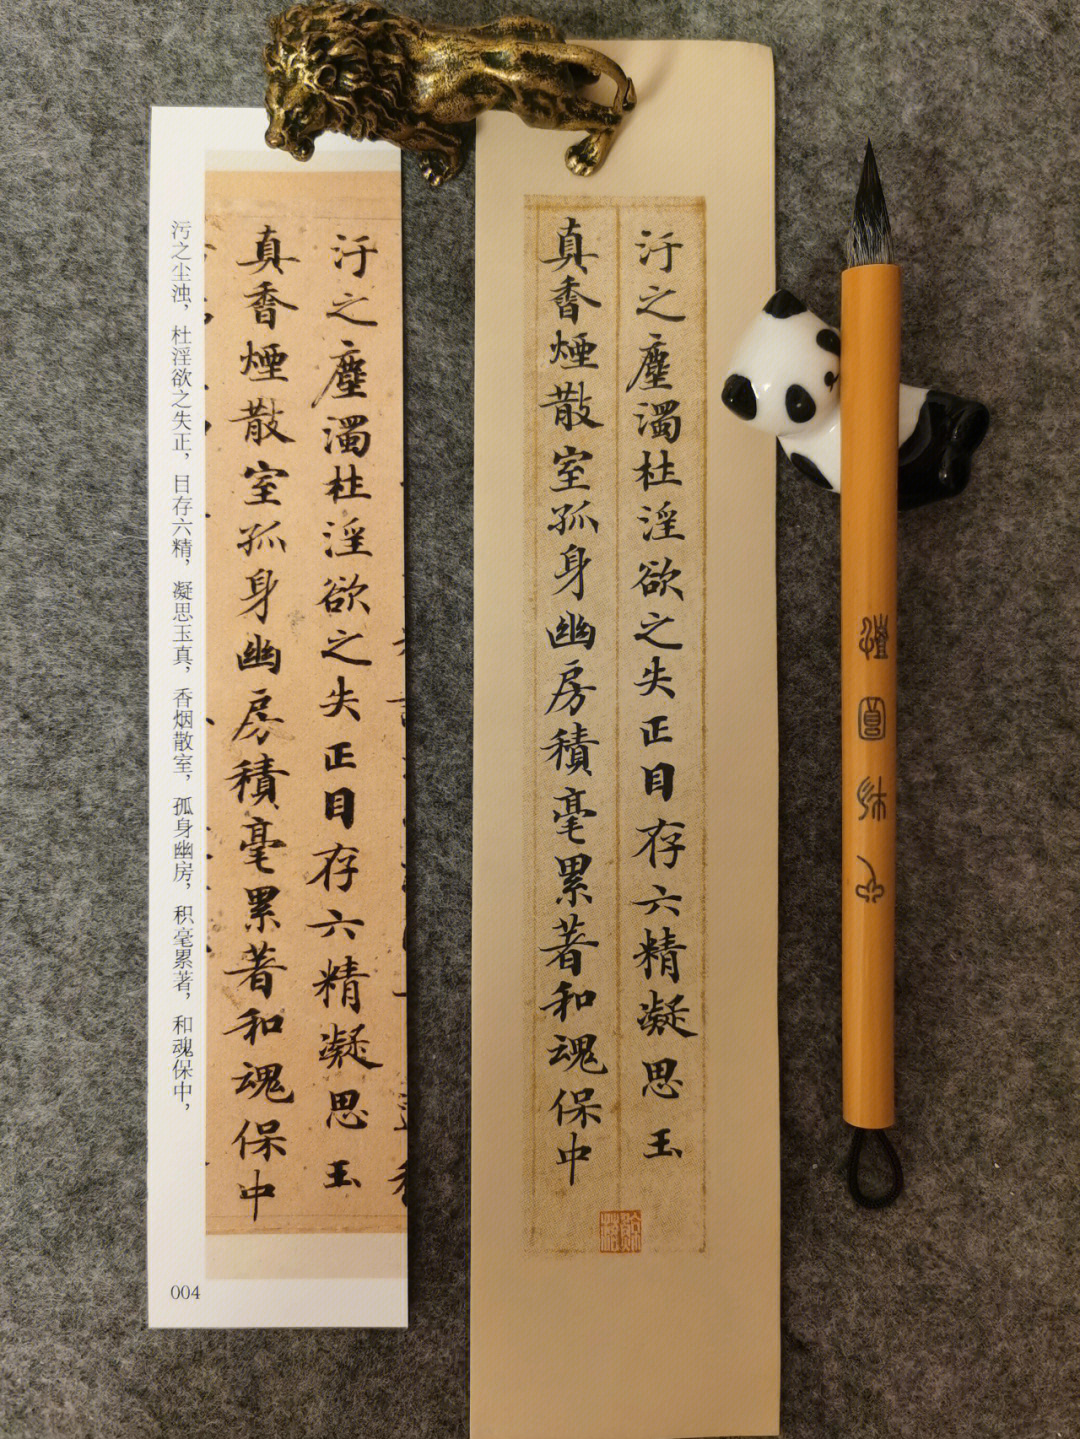 污之尘浊，杜淫欲之失正，目存六精，凝思玉真，香烟散室，孤身幽房，积毫累著，和魂保中，
汙之塵濁杜淫欲之失正目存六精凝思玉
真香煙散室孤身幽房積毫累著和魂保中
004
汙之塵濁杜淫欲之失正目存六精凝思玉
真香煙散室孤身幽房積毫累著和魂保中